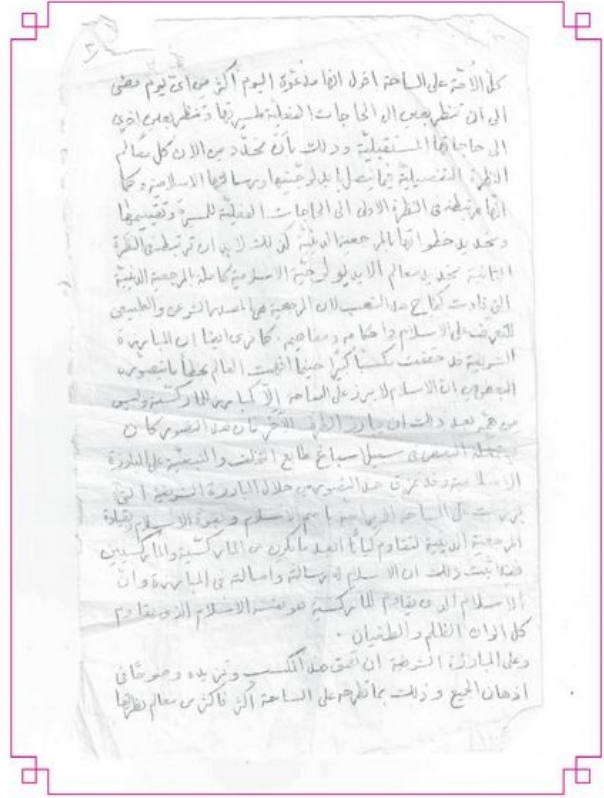 ٣
كل الأمة على الساحة اقول انها مدعوة اليوم أكثر من اي يوم مضى
الى ان تنظر بعين الى الحاجات الفعلية لمسيرتها وتنظر بعين اخرى
الى حاجاتها المستقبلية وذلك بأن تحدد من الان كل معالم
النظرة التفصيلية فيما يتصل بايديولوجيتها ورسالتها الاسلامية وكما
انها مرتبطة في النظرة الاولى الى الحاجات الفعلية للمسيرة وتقييمها
وتحديد خطواتها بالمرجعية الدينية كذلك لا بد ان ترتبط في النظرة
الثانية بتحديد معالم الايديولوجية الاسلامية كاملة بالمرجعية الدينية
التي قادت كفاح هذا الشعب لان المرجعية هي المصدر الشرعي والطبيعي
للتعرف على الاسلام واحكامه ومفاهيمه. كما نرى ايضا ان المبارزة
الشريفة قد حققت مكسبا كبيرا حينما افهمت العالم بخطأ ما يتصوره
البعض من ان الاسلام لا يبرز على الساحة إلا كمبارز للماركسية وليس
من همه بعد ذلك ان يبارز الطرف الآخر فان هذا التصور كان
البعض في سبيل اسباغ طابع التخلف والتبعية على المبارزة
الاسلامية وقد تمزق هذا التصور من خلال المبارزة الشريفة التي
برزت على الساحة الايرانية باسم الاسلام وبقوة الاسلام وبقيادة
المرجعية الدينية لتقاوم كيانا ابعد ما يكون عن الماركسية والماركسيين
ذلك ان الاسلام له رسالته واصالته في المبارزة وان
الاسلام الذي يقاوم الماركسية هو نفسه الاسلام الذي يقاوم
كل الوان الظلم والطغيان.
وعلى المبارزة الشريفة ان تعمق هذا المكسب وتزيده وضوحا في
اذهان الجميع وذلك بما تطرحه على الساحة أكثر فأكثر من معالم نظرتها